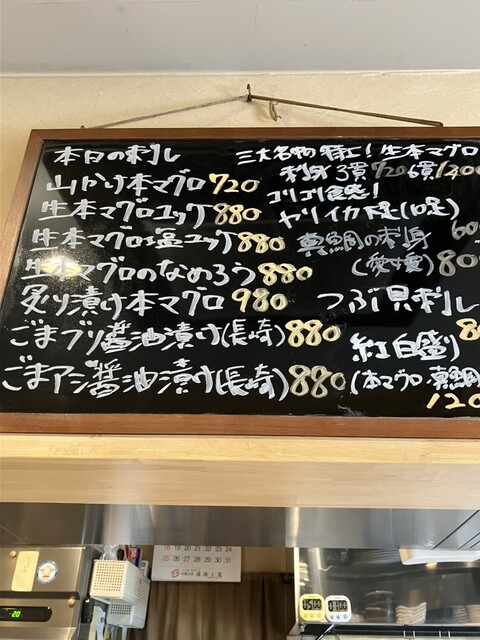 本日の刺し
山かけ本マグロ 720
生本マグロユッケ 880
生本マグロ塩ユッケ 880
生本マグロのなめろう 880
炙り漬け本マグロ 980
ごまブリ醤油漬け(長崎) 880
ごまアジ醤油漬け(長崎) 880
三大名物 特上! 生本マグロ
刺身 3貫 720 6貫 1200
コリコリ食感!
ヤリイカ下足(口足)
600
真鯛の刺身
(愛媛) 80
つぶ貝刺し
8
紅白盛り
(本マグロ・真鯛
120
18 19 20 21 22 23 24
25 26 27 28 29 30 31
20